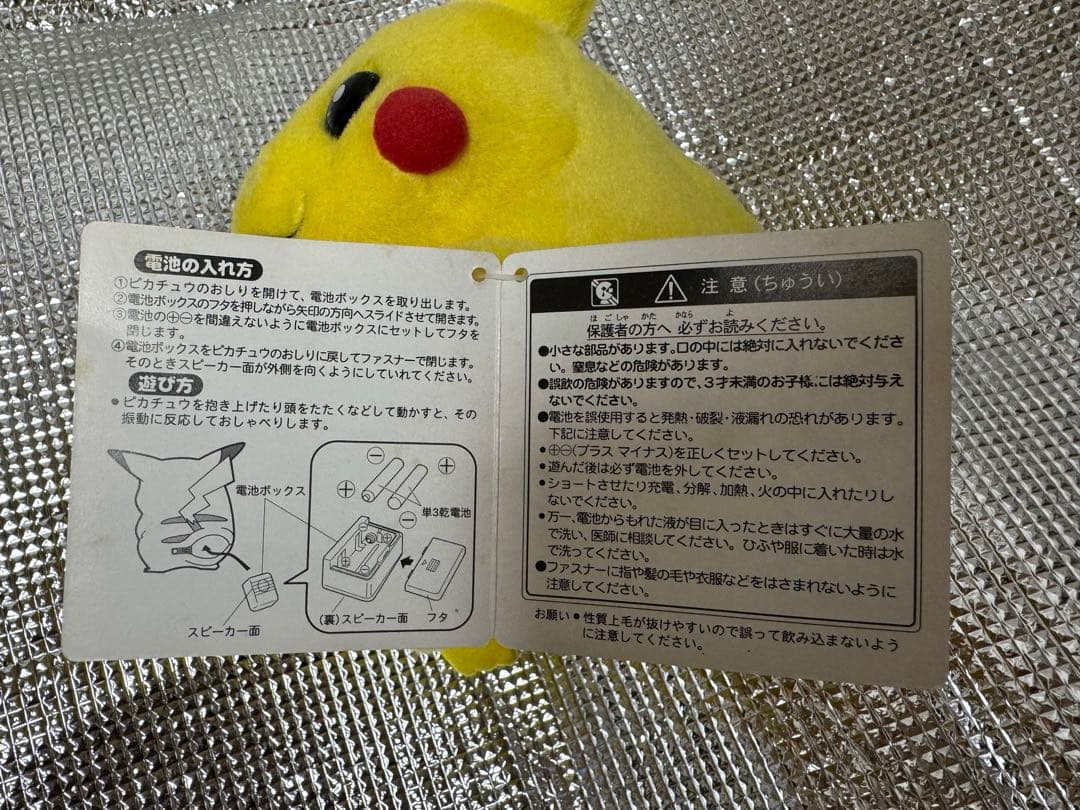 電池の入れ方
①ピカチュウのおしりを開けて、電池ボックスを取り出します。
②電池ボックスのフタを押しながら矢印の方向へスライドさせて開きます。
③電池の⊕⊖を間違えないように電池ボックスにセットしてフタを
閉じます。
④電池ボックスをピカチュウのおしりに戻してファスナーで閉じます。
そのときスピーカー面が外側を向くようにしていれてください。
遊び方
●ピカチュウを抱き上げたり頭をたたくなどして動かすと、その
振動に反応しておしゃべりします。
電池ボックス
スピーカー面
⊖
⊕
⊕
⊖
単3乾電池
(裏)スピーカー面
フタ
注意(ちゅうい)
ほごしゃ かた かなら よ
保護者の方へ 必ずお読みください。
●小さな部品があります。口の中には絶対に入れないでくださ
い。窒息などの危険があります。
●誤飲の危険がありますので、3才未満のお子様には絶対与え
ないでください。
●電池を誤使用すると発熱・破裂・液漏れの恐れがあります。
下記に注意してください。
●⊕⊖(プラス マイナス)を正しくセットしてください。
●遊んだ後は必ず電池を外してください。
●ショートさせたり充電、分解、加熱、火の中に入れたりし
ないでください。
●万一、電池からもれた液が目に入ったときはすぐに大量の水
で洗い、医師に相談してください。ひふや服に着いた時は水
で洗ってください。
●ファスナーに指や髪の毛や衣服などをはさまれないように
注意してください。
お願い●性質上毛が抜けやすいので誤って飲み込まないよう
に注意してください。